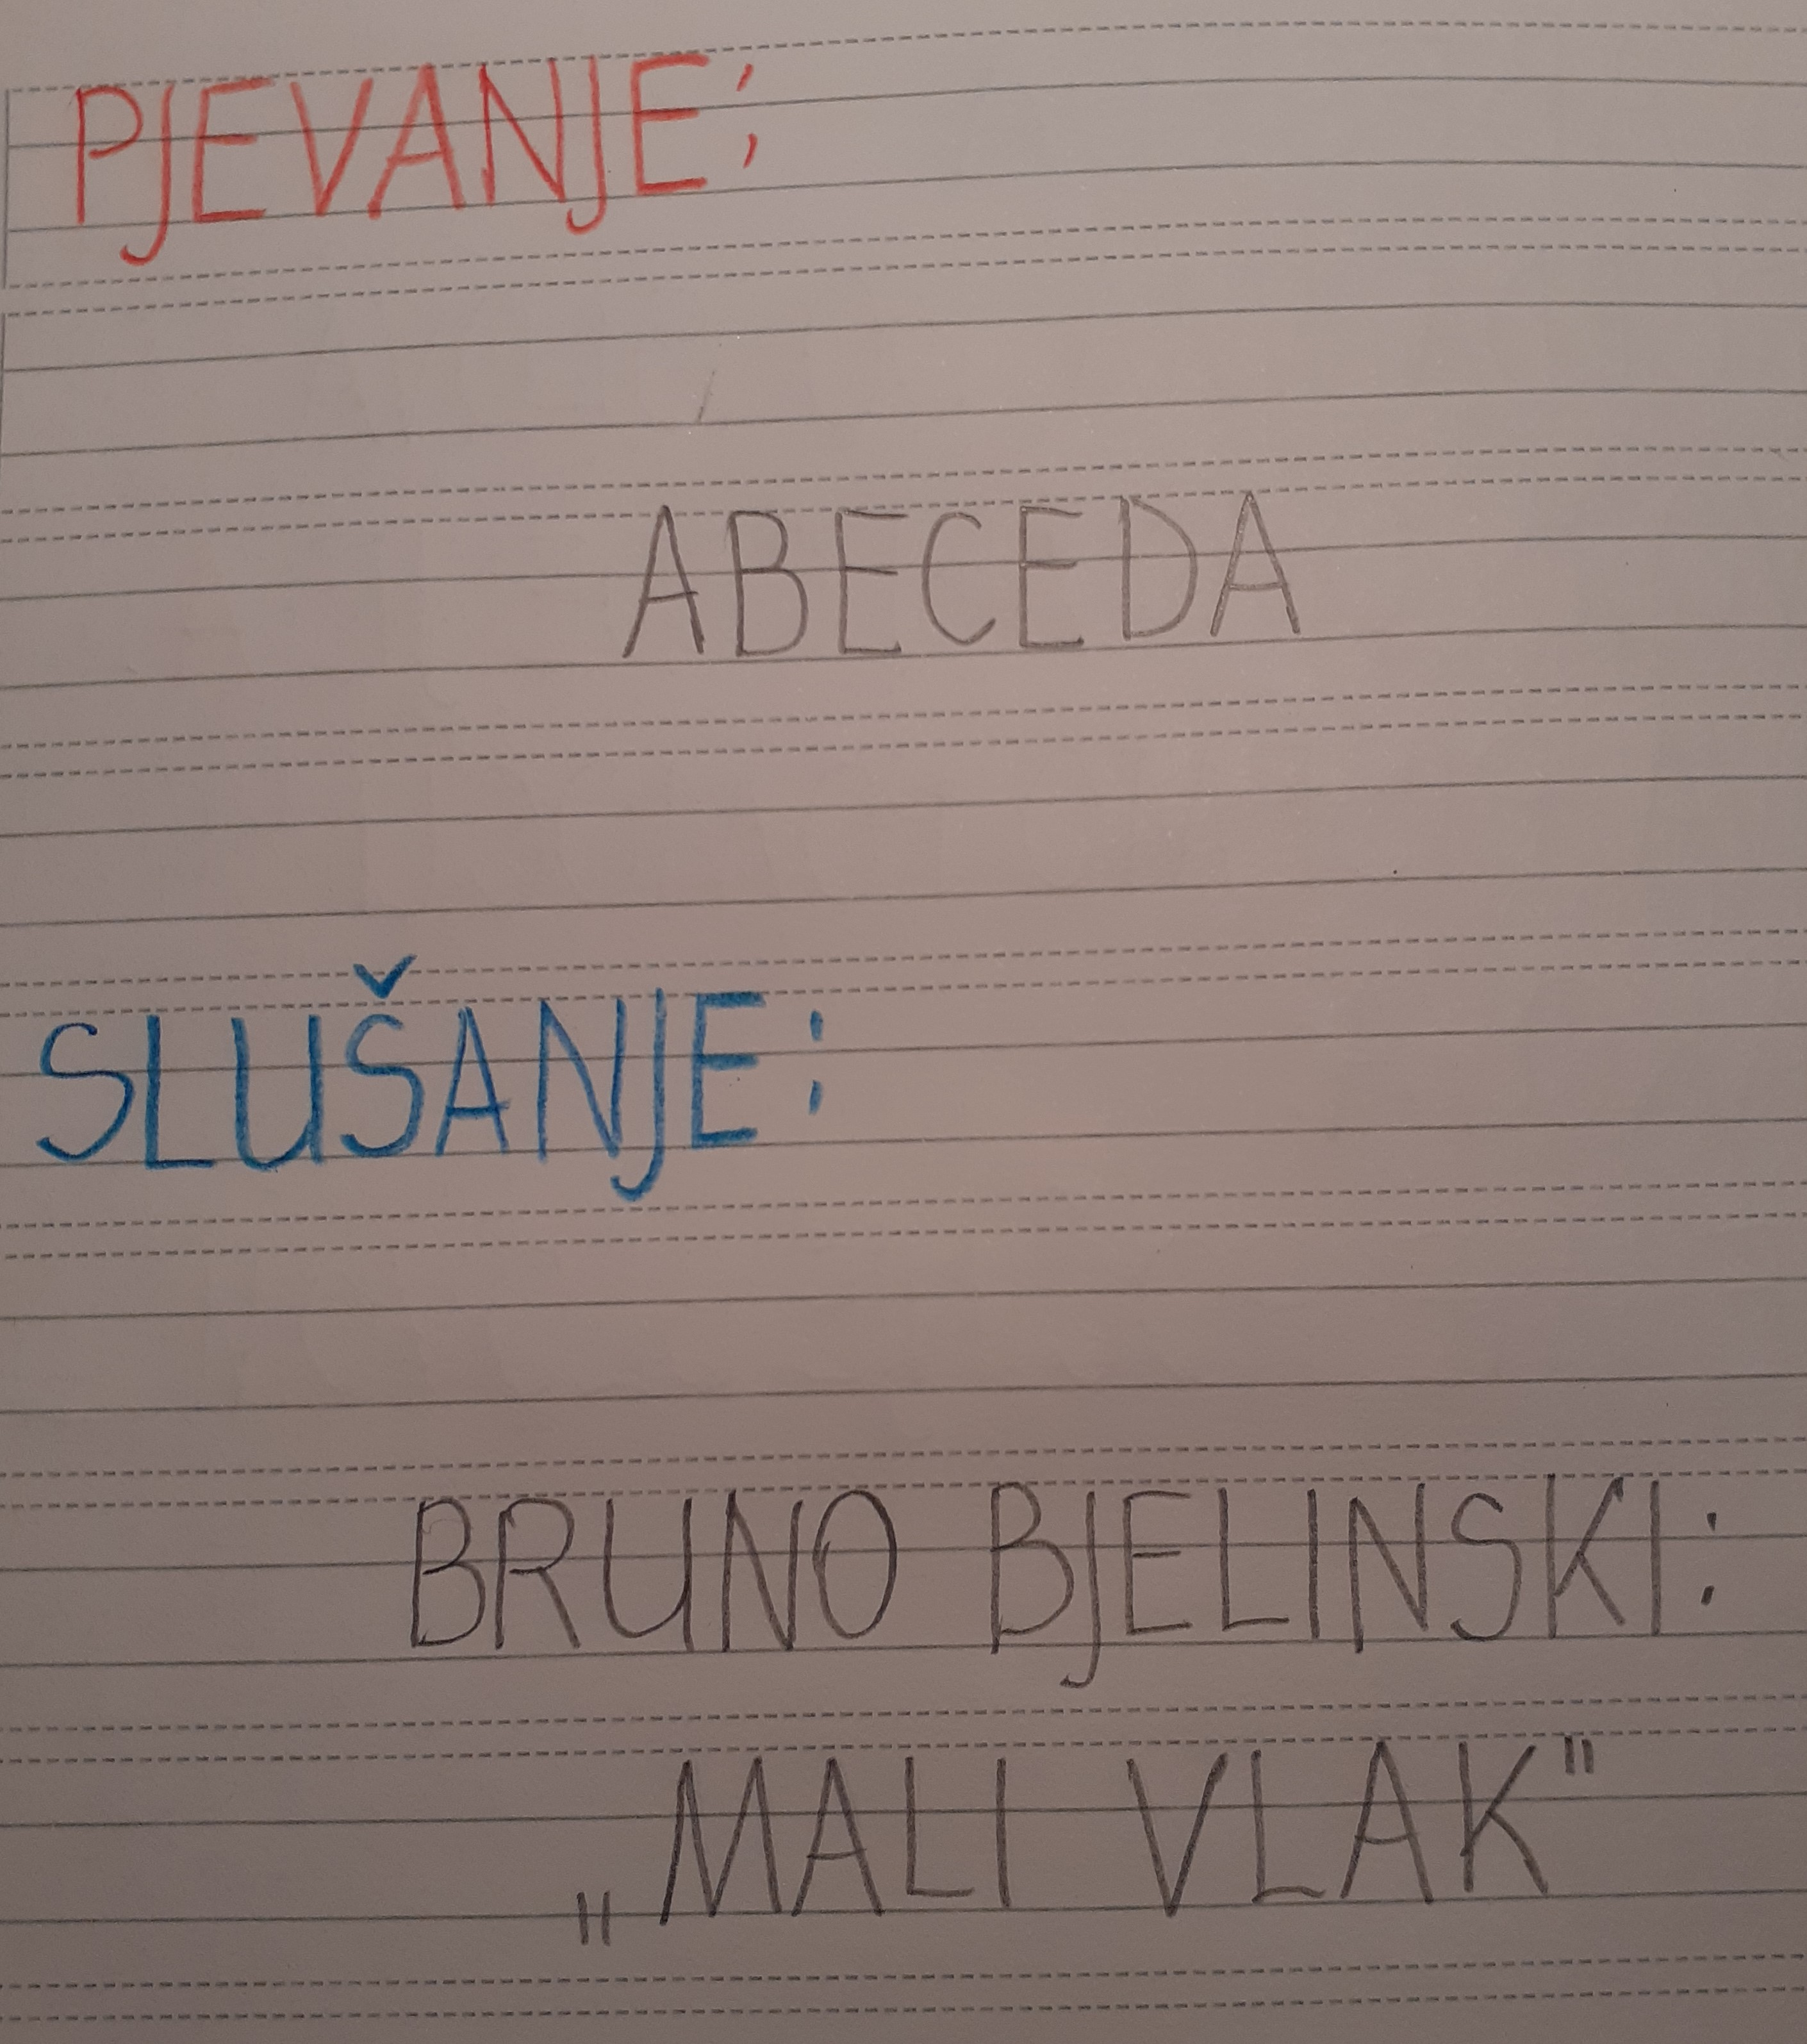 PJEVANJE:
ABECEDA
SLUŠANJE:
BRUNO BJELINSKI:
„MALI VLAK"